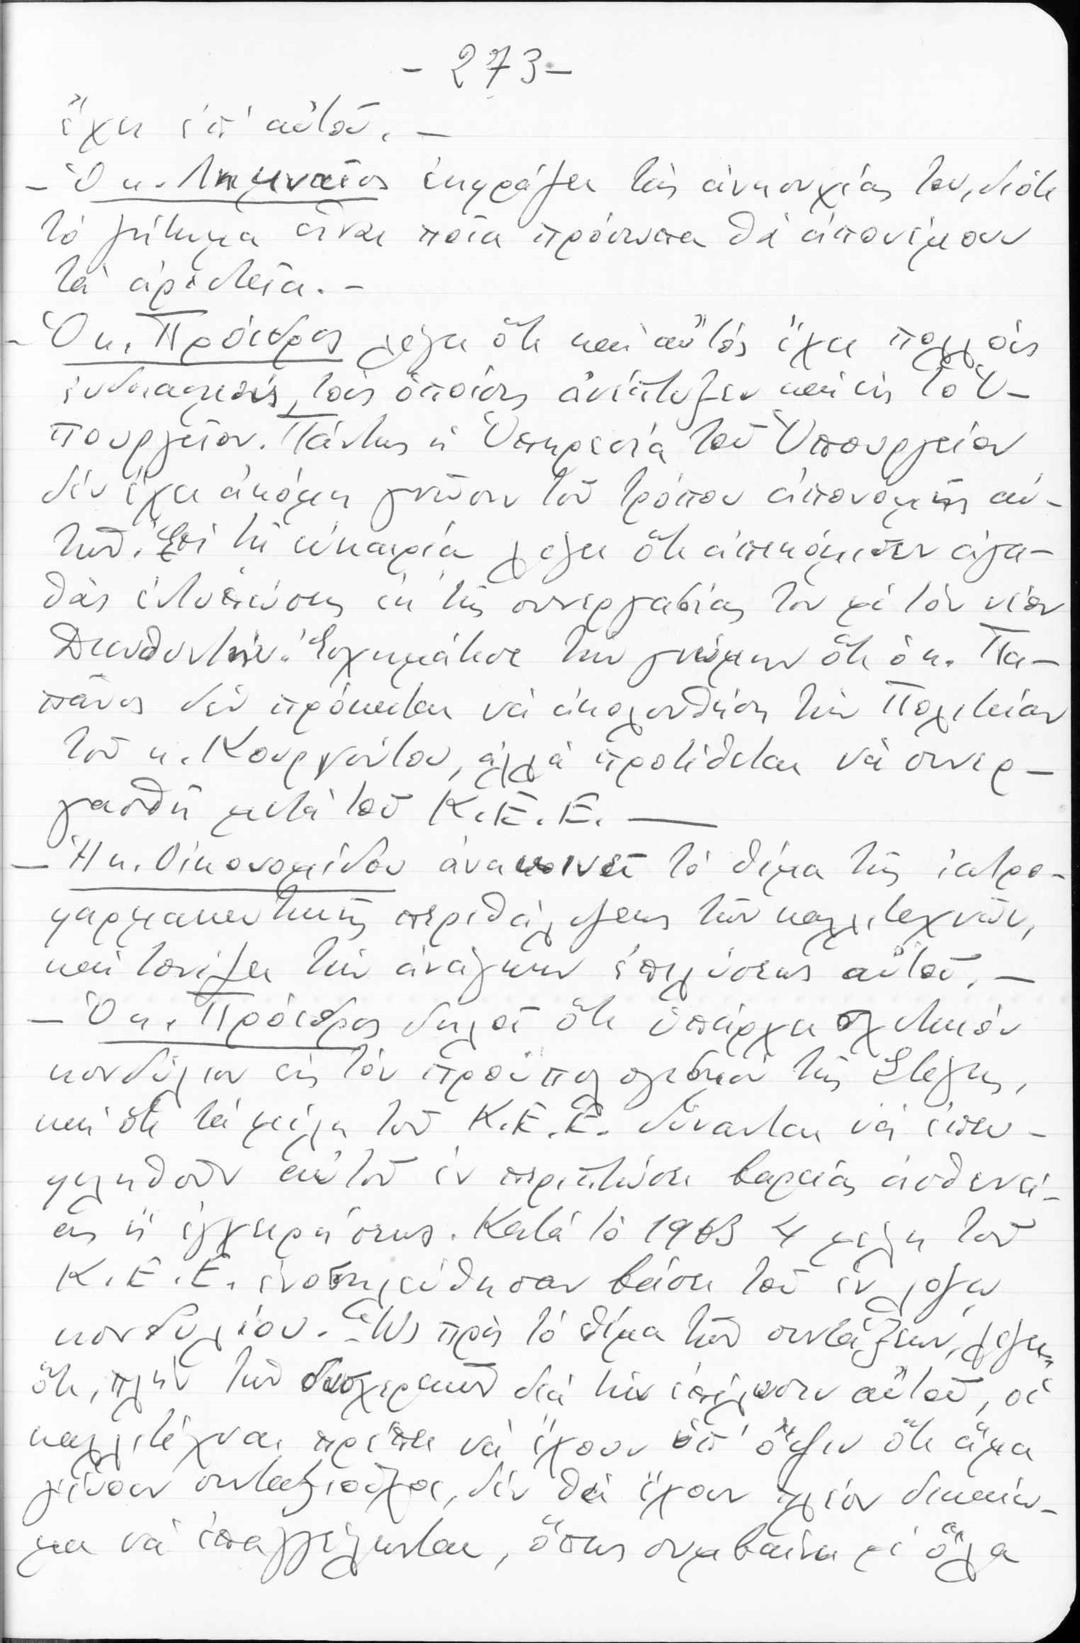 - 273 -
ἔχει ἐπ' αὐτοῦ. —
- Ὁ κ. Λημναῖος ἐκφράζει τὰς ἀνησυχίας του, διότι
τὸ ζήτημα εἶναι ποῖα πρόσωπα θὰ ἀπονέμουν
τὰ ἀριστεῖα. -
- Ὁ κ. Πρόεδρος λέγει ὅτι καὶ αὐτός ἔχει πολλὰς
τὰς ὁποίας ἀνέπτυξεν καὶ εἰς τὸ Ὑ-
πουργεῖον. Πάντως ἡ Ὑπηρεσία τοῦ Ὑπουργείου
δὲν ἔχει ἀκόμη γνῶσιν τοῦ τρόπου ἀπονομῆς αὐ-
τῶν. Ἐπὶ τῇ εὐκαιρίᾳ λέγει ὅτι ἀπεκόμισεν ἀγα-
θὰς ἐντυπώσεις ἐκ τῆς συνεργασίας του μὲ τὸν νέον
Διευθυντήν. Ἐσχημάτισε τὴν γνώμην ὅτι ὁ κ. Πα-
πᾶνος δὲν πρόκειται νὰ ἀκολουθήσῃ τὴν Πολιτείαν
τοῦ κ. Κουρνούτου, ἀλλὰ προτίθεται νὰ συνερ-
γασθῇ μετὰ τοῦ Κ.Ε.Ε. —
- Ἡ κ. Οἰκονομίδου ἀνακοινεῖ τὸ θέμα τῆς ἰατρο-
φαρμακευτικῆς περιθάλψεως τῶν καλλιτεχνῶν,
καὶ τονίζει τὴν ἀνάγκην ἐπιλύσεως αὐτοῦ. —
- Ὁ κ. Πρόεδρος δηλοῖ ὅτι ὑπάρχει σχετικὸν
κονδύλιον εἰς τὸν προϋπολογισμὸν τῆς Στέγης,
καὶ ὅτι τὰ μέλη τοῦ Κ.Ε.Ε. δύνανται νὰ ἐπω-
φεληθοῦν αὐτοῦ ἐν περιπτώσει βαρείας ἀσθενεί-
ας ἢ ἐγχειρήσεως. Κατὰ τὸ 1963 4 μέλη τοῦ
Κ.Ε.Ε. ἐνοσηλεύθησαν βάσει τοῦ ἐν λόγῳ
κονδυλίου. Ὡς πρὸς τὸ θέμα τῶν συντάξεων, λέγει
ὅτι, πλὴν τῶν δυσχερειῶν διὰ τὴν ἐπίλυσιν αὐτοῦ, οἱ
καλλιτέχναι πρέπει νὰ ἔχουν ὑπ' ὄψιν ὅτι ἅμα
γίνουν συνταξιοῦχοι, δὲν θὰ ἔχουν πλέον δικαίω-
μα νὰ ἐπαγγέλωνται, ὅπως συμβαίνει μὲ ὅλα